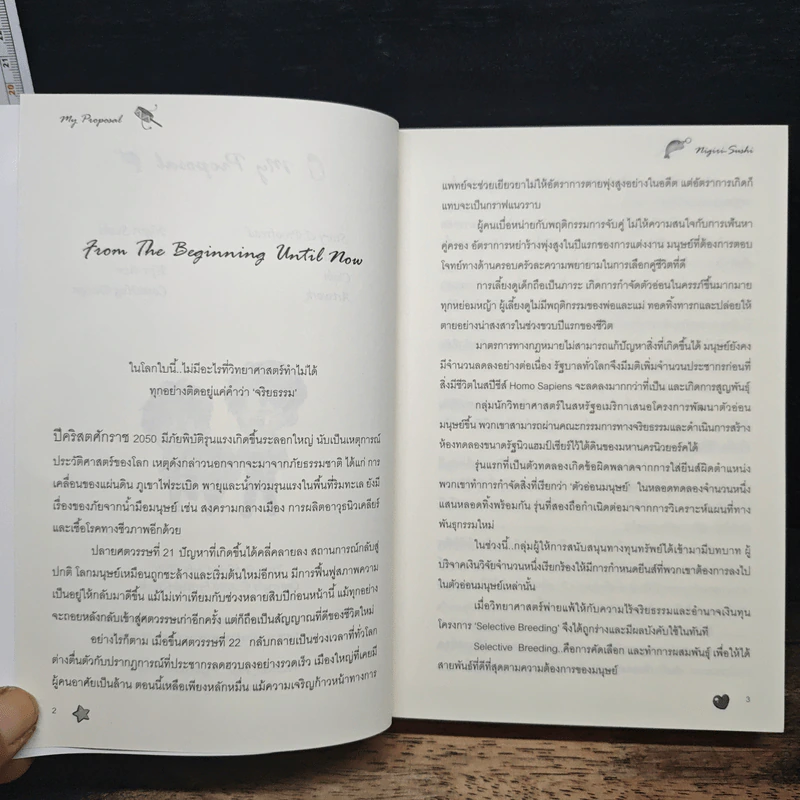 My Proposal
From The Beginning Until Now
ในโลกใบนี้..ไม่มีอะไรที่วิทยาศาสตร์ทำไม่ได้
ทุกอย่างติดอยู่แค่คำว่า 'จริยธรรม'
ปีคริสตศักราช 2050 มีภัยพิบัติรุนแรงเกิดขึ้นระลอกใหญ่ นับเป็นเหตุการณ์
ประวัติศาสตร์ของโลก เหตุดังกล่าวนอกจากจะมาจากภัยธรรมชาติ ได้แก่ การ
เคลื่อนของแผ่นดิน ภูเขาไฟระเบิด พายุและน้ำท่วมรุนแรงในพื้นที่ริมทะเล ยังมี
เรื่องของภัยจากน้ำมือมนุษย์ เช่น สงครามกลางเมือง การผลิตอาวุธนิวเคลียร์
และเชื้อโรคทางชีวภาพอีกด้วย
ปลายศตวรรษที่ 21 ปัญหาที่เกิดขึ้นได้คลี่คลายลง สถานการณ์กลับสู่
ปกติ โลกมนุษย์เหมือนถูกชะล้างและเริ่มต้นใหม่อีกหน มีการฟื้นฟูสภาพความ
เป็นอยู่ให้กลับมาดีขึ้น แม้ไม่เท่าเทียมกับช่วงหลายสิบปีก่อนหน้านี้ แม้ทุกอย่าง
จะถอยหลังกลับเข้าสู่ศตวรรษเก่าอีกครั้ง แต่ก็ถือเป็นสัญญาณที่ดีของชีวิตใหม่
อย่างไรก็ตาม เมื่อขึ้นศตวรรษที่ 22 กลับกลายเป็นช่วงเวลาที่ทั่วโลก
ต่างตื่นตัวกับปรากฏการณ์ที่ประชากรลดฮวบลงอย่างรวดเร็ว เมืองใหญ่ที่เคยมี
ผู้คนอาศัยเป็นล้าน ตอนนี้เหลือเพียงหลักหมื่น แม้ความเจริญก้าวหน้าทางการ
2
Nigiri Sushi
แพทย์จะช่วยเยียวยาไม่ให้อัตราการตายพุ่งสูงอย่างในอดีต แต่อัตราการเกิดก็
แทบจะเป็นกราฟแนวราบ
ผู้คนเบื่อหน่ายกับพฤติกรรมการจับคู่ ไม่ให้ความสนใจกับการเฟ้นหา
คู่ครอง อัตราการหย่าร้างพุ่งสูงในปีแรกของการแต่งงาน มนุษย์ที่ต้องการตอบ
โจทย์ทางด้านครอบครัวละความพยายามในการเลือกคู่ชีวิตที่ดี
การเลี้ยงดูเด็กถือเป็นภาระ เกิดการกำจัดตัวอ่อนในครรภ์ขึ้นมากมาย
ทุกหย่อมหญ้า ผู้เลี้ยงดูไม่มีพฤติกรรมของพ่อและแม่ ทอดทิ้งทารกและปล่อยให้
ตายอย่างน่าสงสารในช่วงขวบปีแรกของชีวิต
มาตรการทางกฎหมายไม่สามารถแก้ปัญหาสิ่งที่เกิดขึ้นได้ มนุษย์ยังคง
มีจำนวนลดลงอย่างต่อเนื่อง รัฐบาลทั่วโลกจึงมีมติเพิ่มจำนวนประชากรก่อนที่
สิ่งมีชีวิตในสปีชีส์ Homo Sapiens จะลดลงมากกว่าที่เป็น และเกิดการสูญพันธุ์
กลุ่มนักวิทยาศาสตร์ในสหรัฐอเมริกาเสนอโครงการพัฒนาตัวอ่อน
มนุษย์ขึ้น พวกเขาสามารถผ่านคณะกรรมการทางจริยธรรมและดำเนินการสร้าง
ห้องทดลองขนาดรัฐนิวแฮมป์เชียร์ไว้ใต้ดินของมหานครนิวยอร์คได้
รุ่นแรกที่เป็นตัวทดลองเกิดข้อผิดพลาดจากการใส่ยีนส์ผิดตำแหน่ง
พวกเขาทำการกำจัดสิ่งที่เรียกว่า 'ตัวอ่อนมนุษย์' ในหลอดทดลองจำนวนหนึ่ง
แสนหลอดทิ้งพร้อมกัน รุ่นที่สองถือกำเนิดต่อมาจากการวิเคราะห์แผนที่ทาง
พันธุกรรมใหม่
ในช่วงนี้..กลุ่มผู้ให้การสนับสนุนทางทุนทรัพย์ได้เข้ามามีบทบาท ผู้
บริจาคเงินวิจัยจำนวนหนึ่งเรียกร้องให้มีการกำหนดยีนส์ที่พวกเขาต้องการลงไป
ในตัวอ่อนมนุษย์เหล่านั้น
เมื่อวิทยาศาสตร์พ่ายแพ้ให้กับความไร้จริยธรรมและอำนาจเงินทุน
โครงการ 'Selective Breeding' จึงได้ถูกร่างและมีผลบังคับใช้ในทันที
Selective Breeding..คือการคัดเลือก และทำการผสมพันธุ์ เพื่อให้ได้
สายพันธุ์ที่ดีที่สุดตามความต้องการของมนุษย์
3